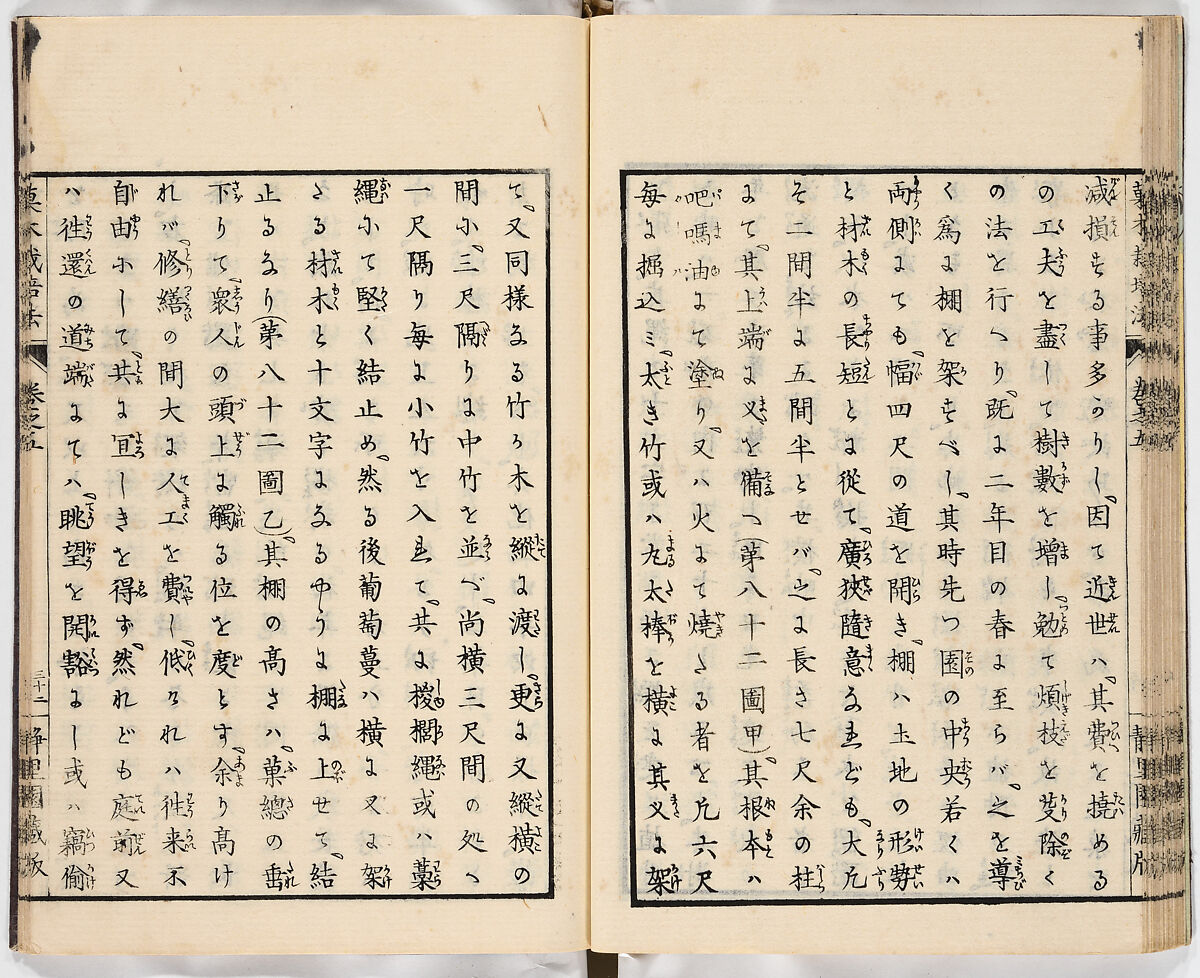 菓木栽培法 卷之五 靜里園藏版
減損する事多かりし因て近世ハ其費を撓める
の工夫を盡して樹數を增し勉て煩枝を芟除く
の法を行へり既に二年目の春に至らバ之を導
く爲に棚を架すべし其時先つ園の中央若くハ
両側にても幅四尺の道を開き棚ハ土地の形勢
と材木の長短とに從て廣狹隨意なれども大凡
そ二間半に五間半とせバ之に長さ七尺余の柱
にて其上端に叉を備へ(第八十二圖甲)其根本ハ
吧嗎油にて塗り又ハ火にて燒たる者を凡六尺
每に掘込ミ太き竹或ハ丸太棒を横に其叉に架
て又同様なる竹か木を縱に渡し更に又縱横の
間に三尺隔りに中竹を並べ尚横三尺間の処へ
一尺隔り每に小竹を入れて共に椶櫚繩或ハ藁
繩にて堅く結止め然る後葡萄蔓ハ横に又に架
たる材木と十文字になるやうに棚に上せて結
止るなり(第八十二圖乙)其棚の高さハ菓總の垂
下りて衆人の頭上に觸る位を度とす余り高け
れバ修繕の間大に人工を費し低けれハ徃来不
自由にして共に宜しきを得ず然れども庭前又
ハ徃還の道端にてハ眺望を開豁にし或ハ竊偷
菓木栽培法 卷之五 三十二 靜里園藏版